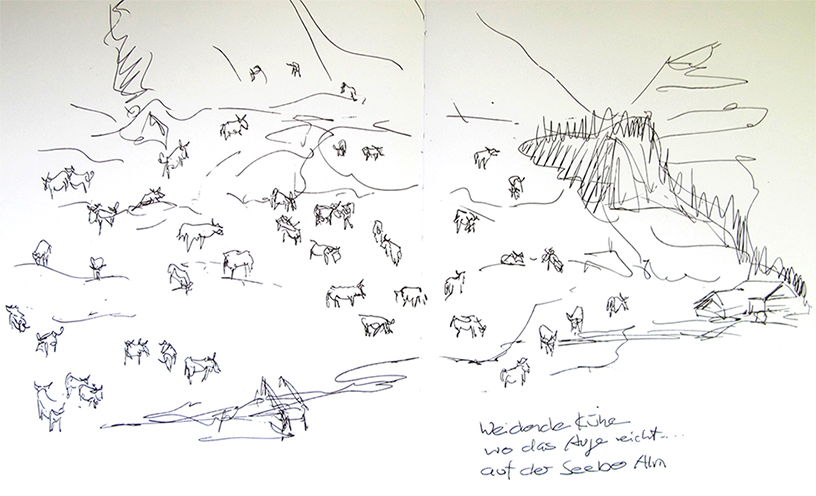 Weidende Kühe
wo das Auge reicht....
auf der Seeber Alm